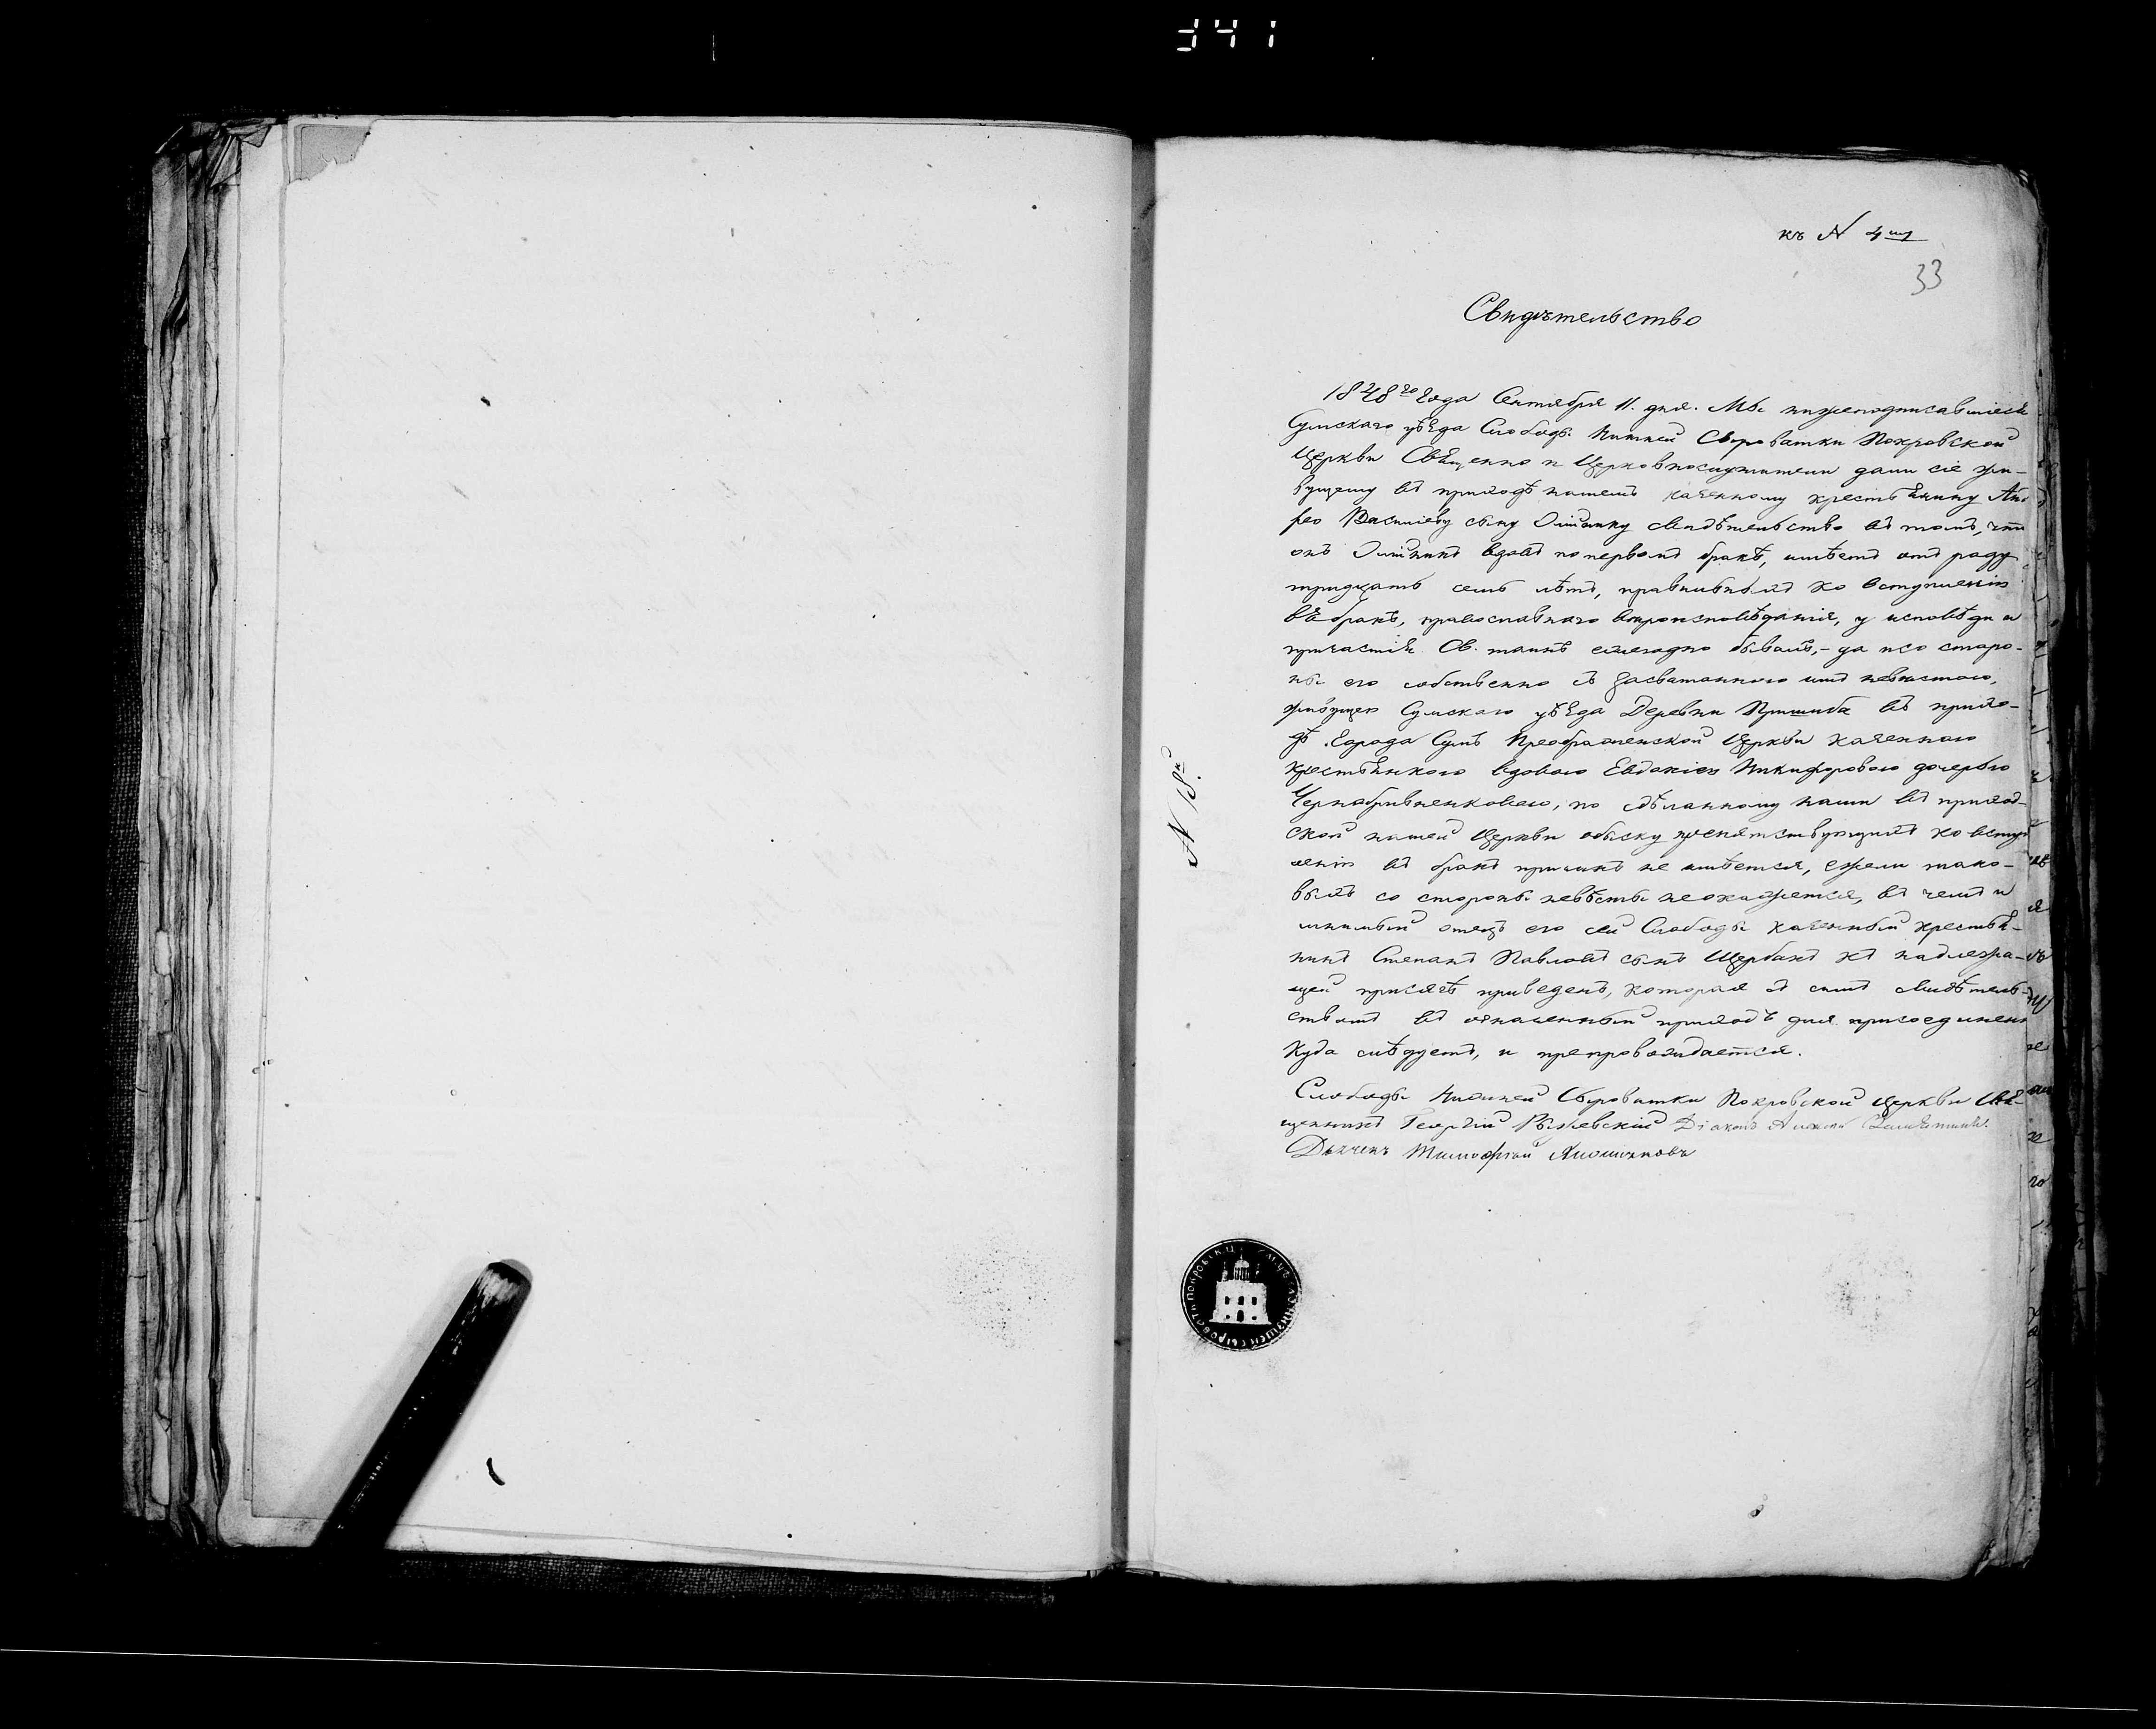 341
къ N 4му
33
Свидѣтельство
1848го года Сентября 11. дня. Мы нижеподписавшіеся
Сумскаго уѣзда Слободы Нижней Сыроватки Покровской
Церкви Священно и Церковнослужители дали сіе жи-
вущему въ приходѣ нашемъ казенному крестьянину Ан
рею Василіеву сыну свидѣтельство въ томъ, что
онъ вдовъ по первомъ бракѣ, имѣетъ отъ роду
тридцать семь лѣтъ, правильный ко вступленію
въ бракъ, православнаго вѣроисповѣданія, у исповѣди и
причастія Св. таинъ ежегодно бываетъ,- да и со старо-
ны его собственно съ засватанною имъ невѣстою,
живущею Сумскаго уѣзда Деревни Пришиба въ прихо-
дѣ Города Сумъ Преображенской Церкви казенною
крестьянкою вдовою Евдокіею Никифоровою дочерью
Чернобривченковою, по сдѣланному нами въ приход-
ской нашей Церкви обыску препятствующихъ ко вступ
ленію въ бракъ причинъ не имѣется, ежели тако-
выхъ со стороны невѣсты не окажется, въ чемъ и
мнимый отецъ его сей Слободы казенный крестья-
нинъ Степанъ Павловъ сынъ Щербакъ къ надлежа-
щей присягѣ приведенъ, которая съ симъ свидѣтель-
ствомъ въ означенный приходъ для присоединені
куда слѣдуетъ, и препровождается.
Слободы Нижней Сыроватки Покровской Церкви Свя-
щенникъ Георгій Діаконъ Алексѣй
Дьячекъ Тимофѣй
N 18.